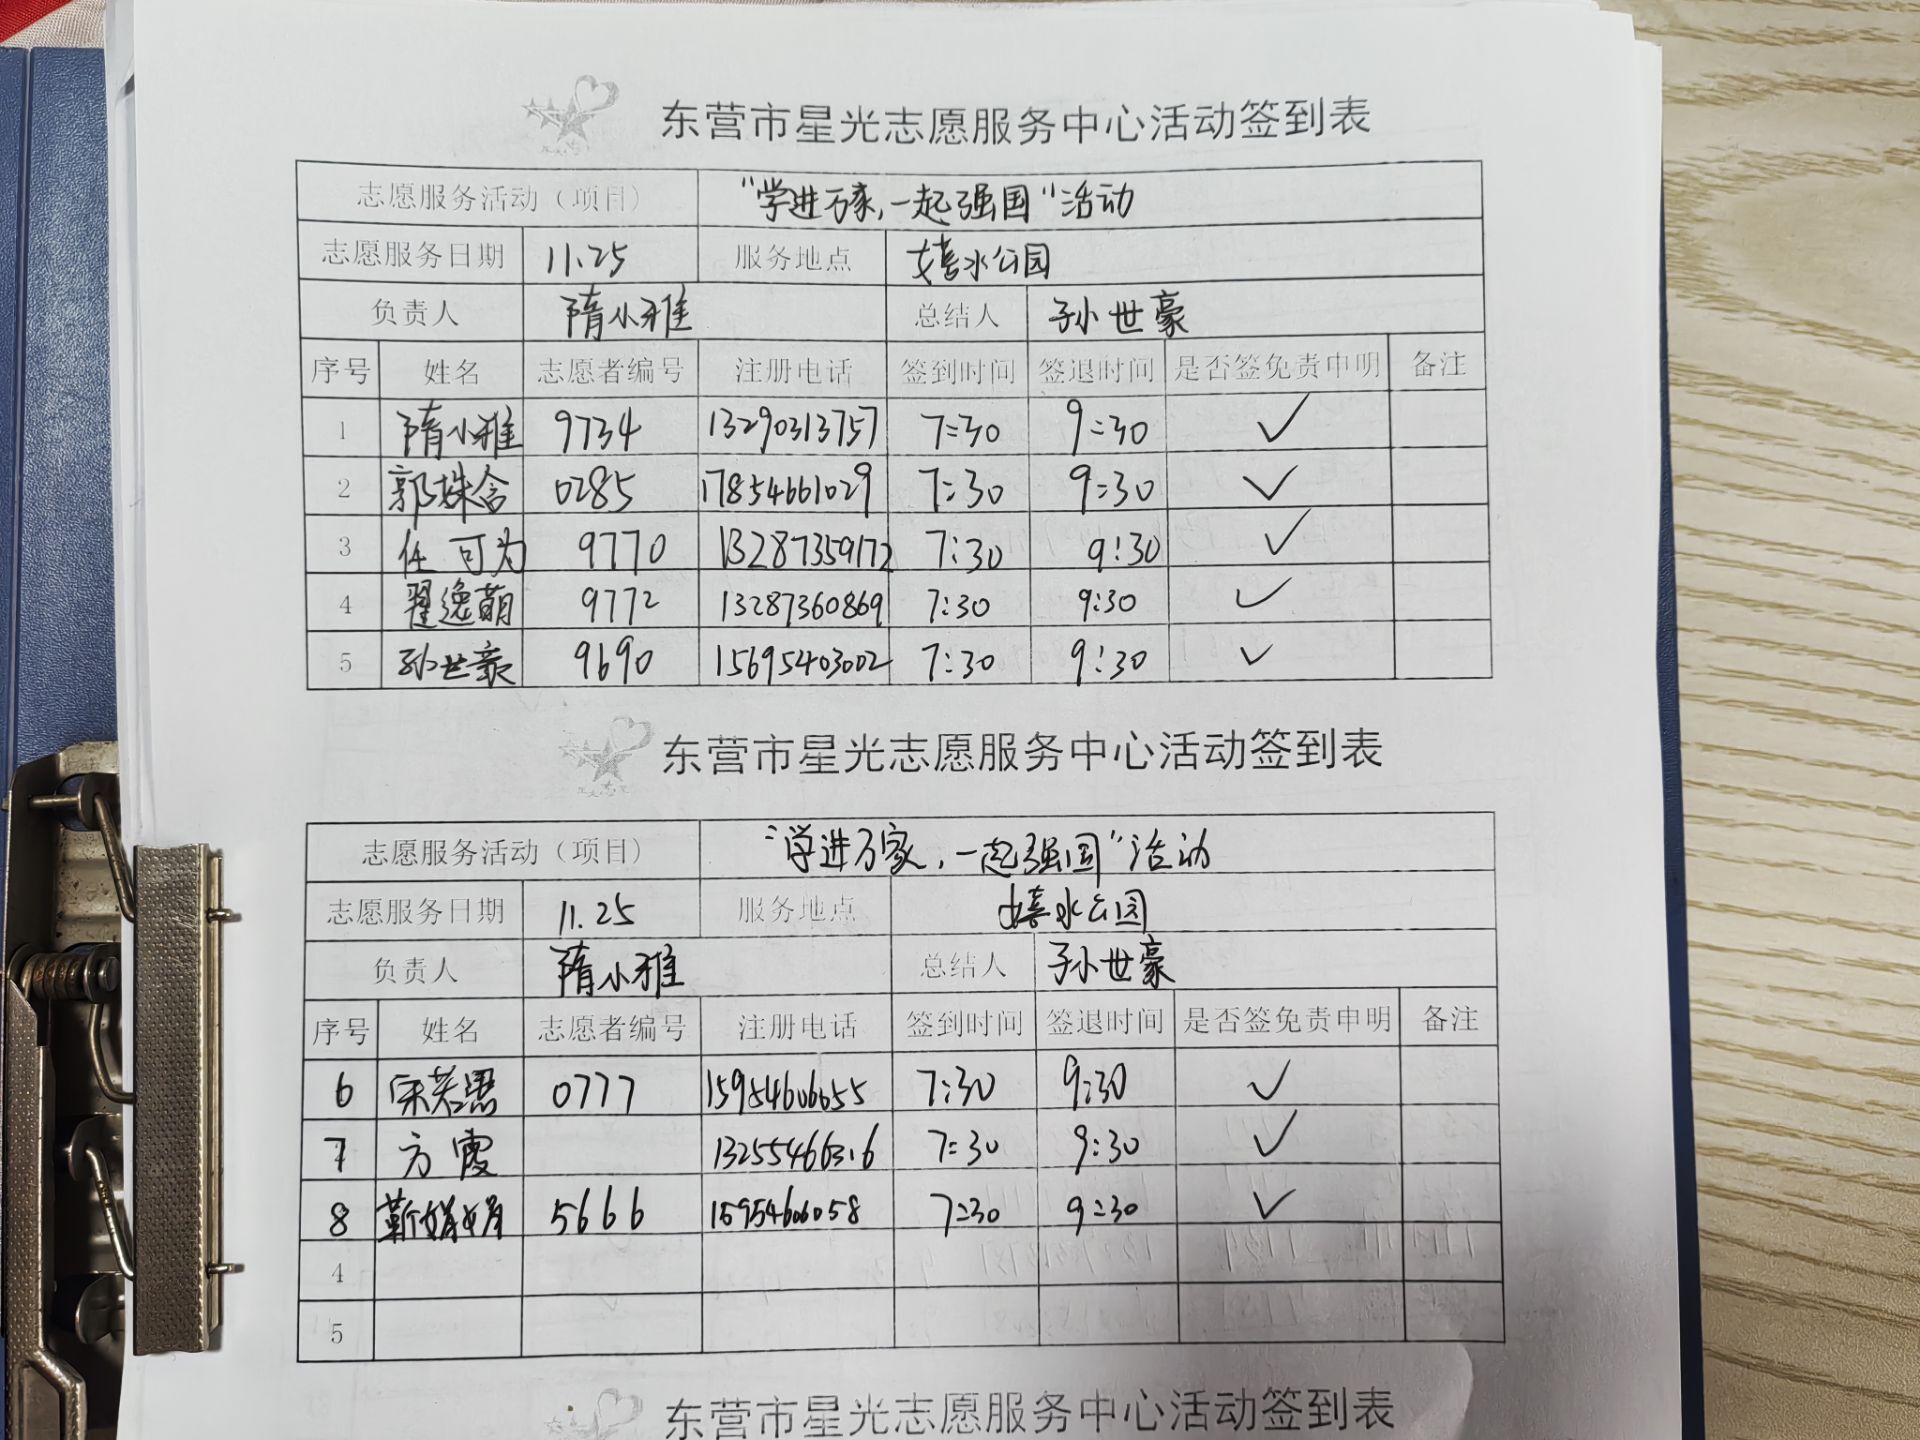 东营市星光志愿服务中心活动签到表
志愿服务活动（项目） “学进万家，一起强国”活动
志愿服务日期 11.25 服务地点 嬉水公园
负责人 隋小雅 总结人 孙世豪
序号 姓名 志愿者编号 注册电话 签到时间 签退时间 是否签免责申明 备注
1 隋小雅 9734 13290313757 7:30 9:30 ✓
2 郭姝含 0285 17854661029 7:30 9:30 ✓
3 任可为 9770 13287359172 7:30 9:30 ✓
4 翟逸萌 9772 13287360869 7:30 9:30 ✓
5 孙世豪 9690 15695403002 7:30 9:30 ✓
东营市星光志愿服务中心活动签到表
志愿服务活动（项目） “学进万家，一起强国”活动
志愿服务日期 11.25 服务地点 嬉水公园
负责人 隋小雅 总结人 孙世豪
序号 姓名 志愿者编号 注册电话 签到时间 签退时间 是否签免责申明 备注
6 0777 15954606655 7:30 9:30 ✓
7 方霞 13255466316 7:30 9:30 ✓
8 靳娟娟 5666 15954606058 7:30 9:30 ✓
4
5
东营市星光志愿服务中心活动签到表